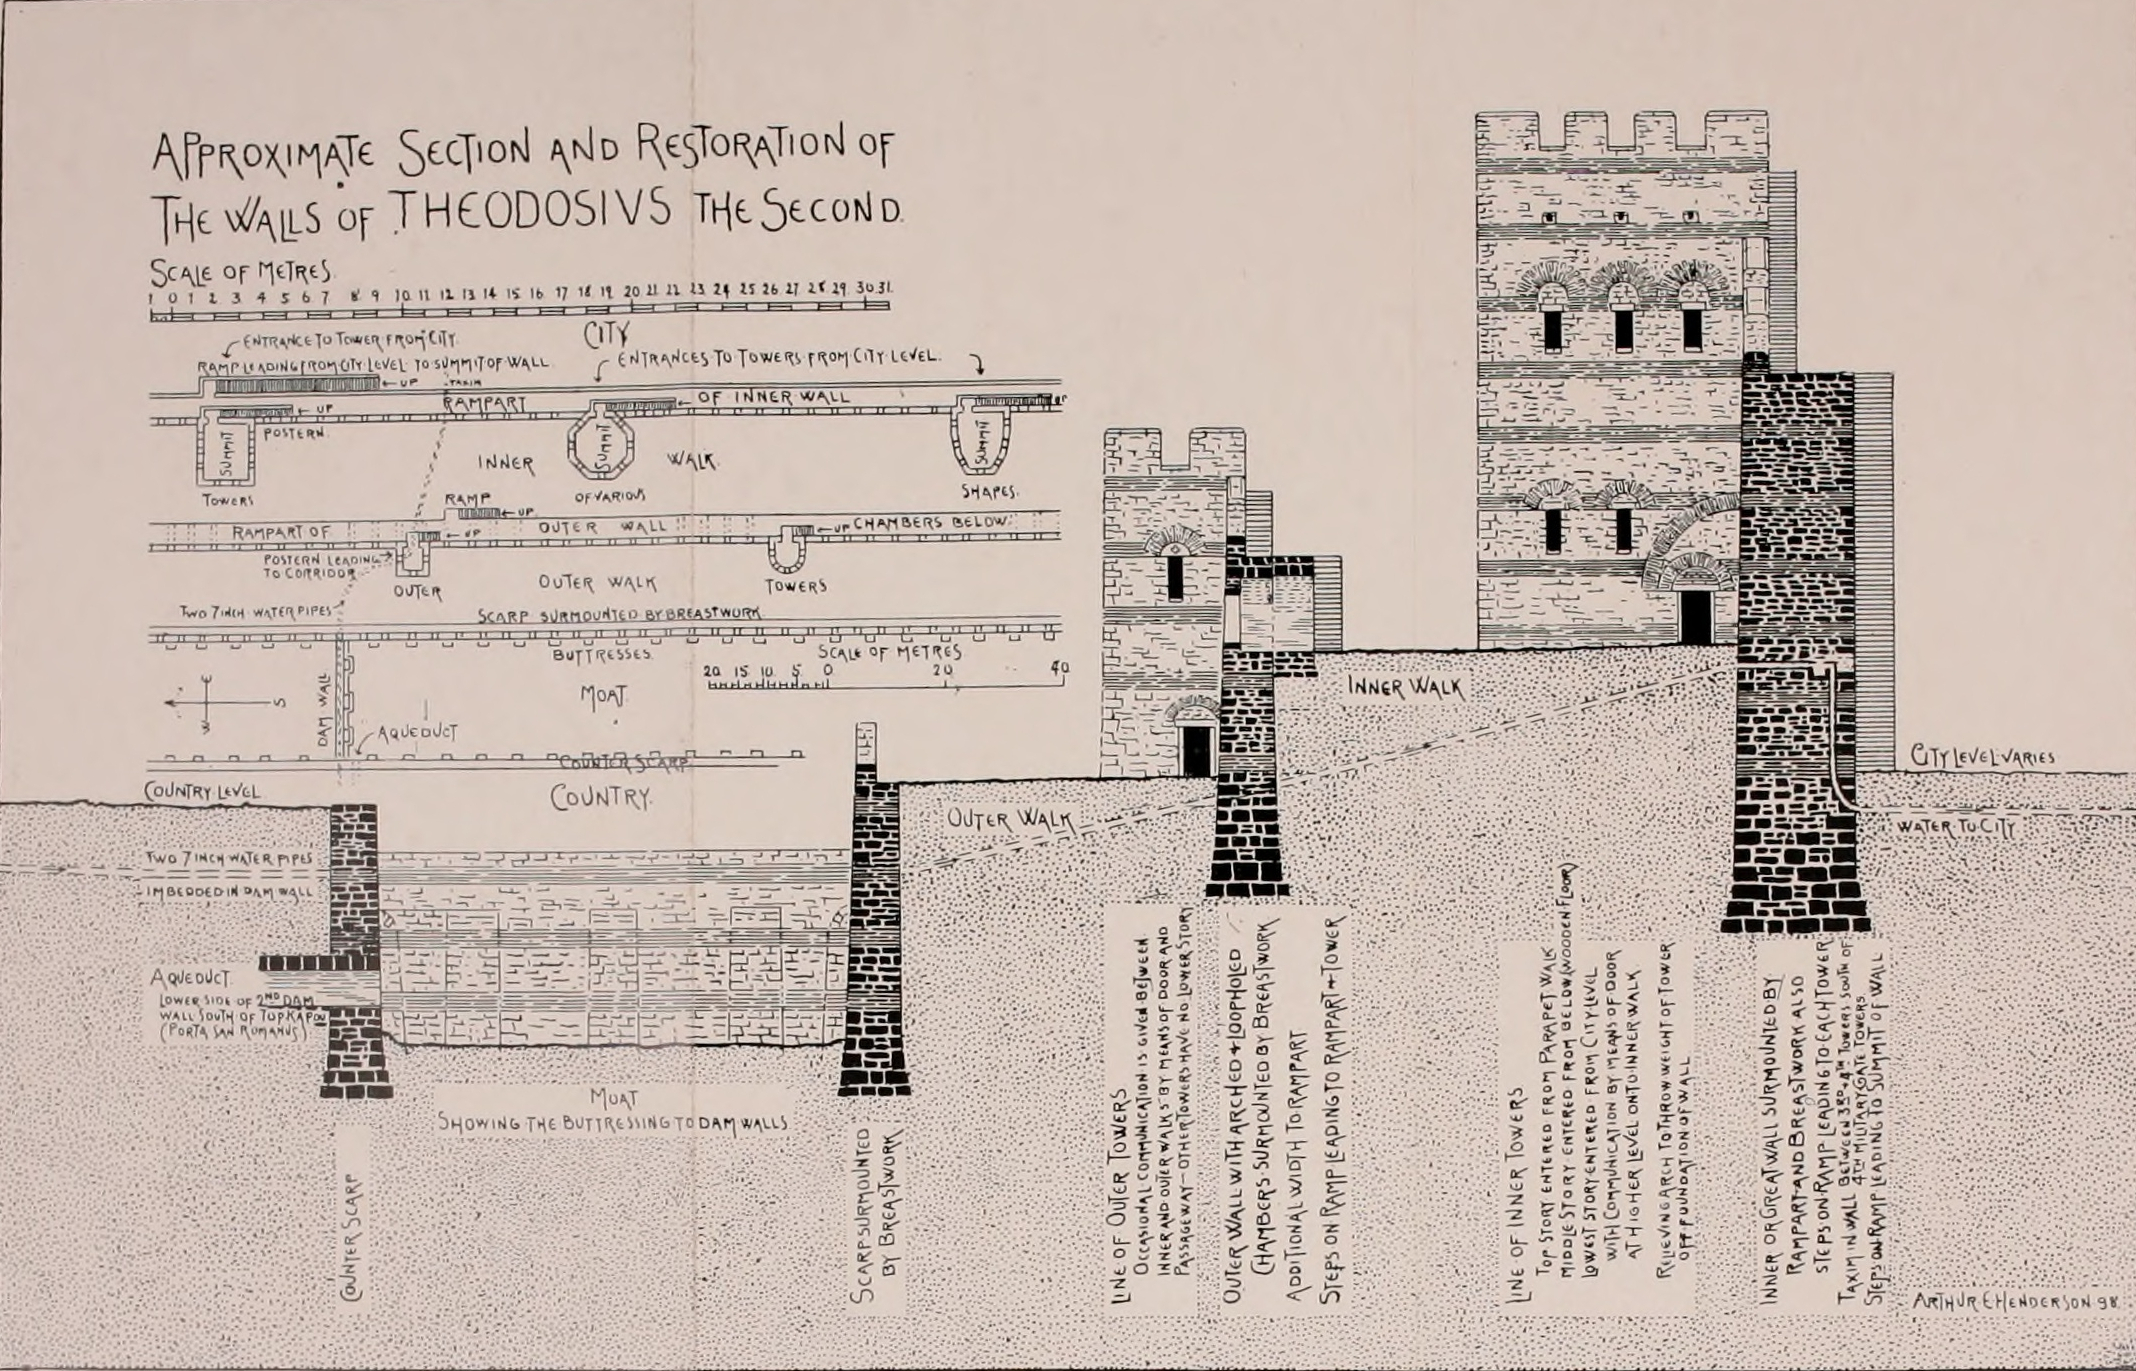 APPROXIMATE SECTION AND RESTORATION OF
THE WALLS OF THEODOSIVS THE SECOND.
SCALE OF METRES.
1 0 1 2 3 4 5 6 7 8 9 10 11 12 13 14 15 16 17 18 19 20 21 22 23 24 25 26 27 28 29 30 31
ENTRANCE TO TOWER FROM CITY.
CITY
RAMP LEADING FROM CITY LEVEL TO SUMMIT OF WALL
ENTRANCES TO TOWERS FROM CITY LEVEL.
UP
TAXIM
UP
RAMPART
OF INNER WALL
UP
POSTERN
SUMMIT
SUMMIT
SUMMIT
INNER
WALK.
TOWERS
OF VARIOUS
SHAPES.
RAMP
UP
RAMPART OF
OUTER WALL
UP
UP
CHAMBERS BELOW
POSTERN LEADING
TO CORRIDOR
OUTER
OUTER WALK
TOWERS
TWO 7 INCH WATER PIPES
SCARP SURMOUNTED BY BREASTWORK
BUTTRESSES.
SCALE OF METRES
20 15 10 5 0 20 40
MOAT.
E
S
W
DAM WALL
AQUEDUCT
COUNTER SCARP
COUNTRY LEVEL
COUNTRY.
TWO 7 INCH WATER PIPES
IMBEDDED IN DAM WALL
AQUEDUCT
LOWER SIDE OF 2ND DAM
WALL SOUTH OF TOPKAPOU
(PORTA SAN ROMANUS)
MOAT
SHOWING THE BUTTRESSING TO DAM WALLS
OUTER WALK
INNER WALK
CITY LEVEL VARIES
WATER TO CITY
COUNTER SCARP
SCARP SURMOUNTED
BY BREASTWORK
LINE OF OUTER TOWERS
OCCASIONAL COMMUNICATION IS GIVEN BETWEEN
INNER AND OUTER WALKS BY MEANS OF DOOR AND
PASSAGEWAY - OTHER TOWERS HAVE NO LOWER STORY
OUTER WALL WITH ARCHED & LOOPHOLED
CHAMBERS SURMOUNTED BY BREASTWORK
ADDITIONAL WIDTH TO RAMPART
STEPS ON RAMP LEADING TO RAMPART & TOWER
LINE OF INNER TOWERS
TOP STORY ENTERED FROM PARAPET WALK
MIDDLE STORY ENTERED FROM BELOW (WOODEN FLOOR)
LOWEST STORY ENTERED FROM CITY LEVEL
WITH COMMUNICATION BY MEANS OF DOOR
AT HIGHER LEVEL ONTO INNER WALK.
RELIEVING ARCH TO THROW WEIGHT OF TOWER
OFF FOUNDATION OF WALL
INNER OR GREAT WALL SURMOUNTED BY
RAMPART AND BREASTWORK ALSO
STEPS ON RAMP LEADING TO EACH TOWER
TAXIM IN WALL BETWEEN 3RD & 4TH TOWERS SOUTH OF
4TH MILITARY GATE TOWERS
STEPS ON RAMP LEADING TO SUMMIT OF WALL
ARTHUR E HENDERSON 98